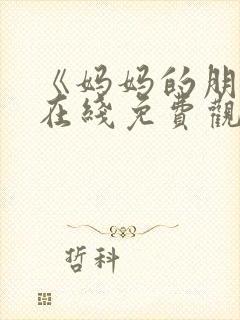 《妈妈的朋
在綫免費觀
哲科